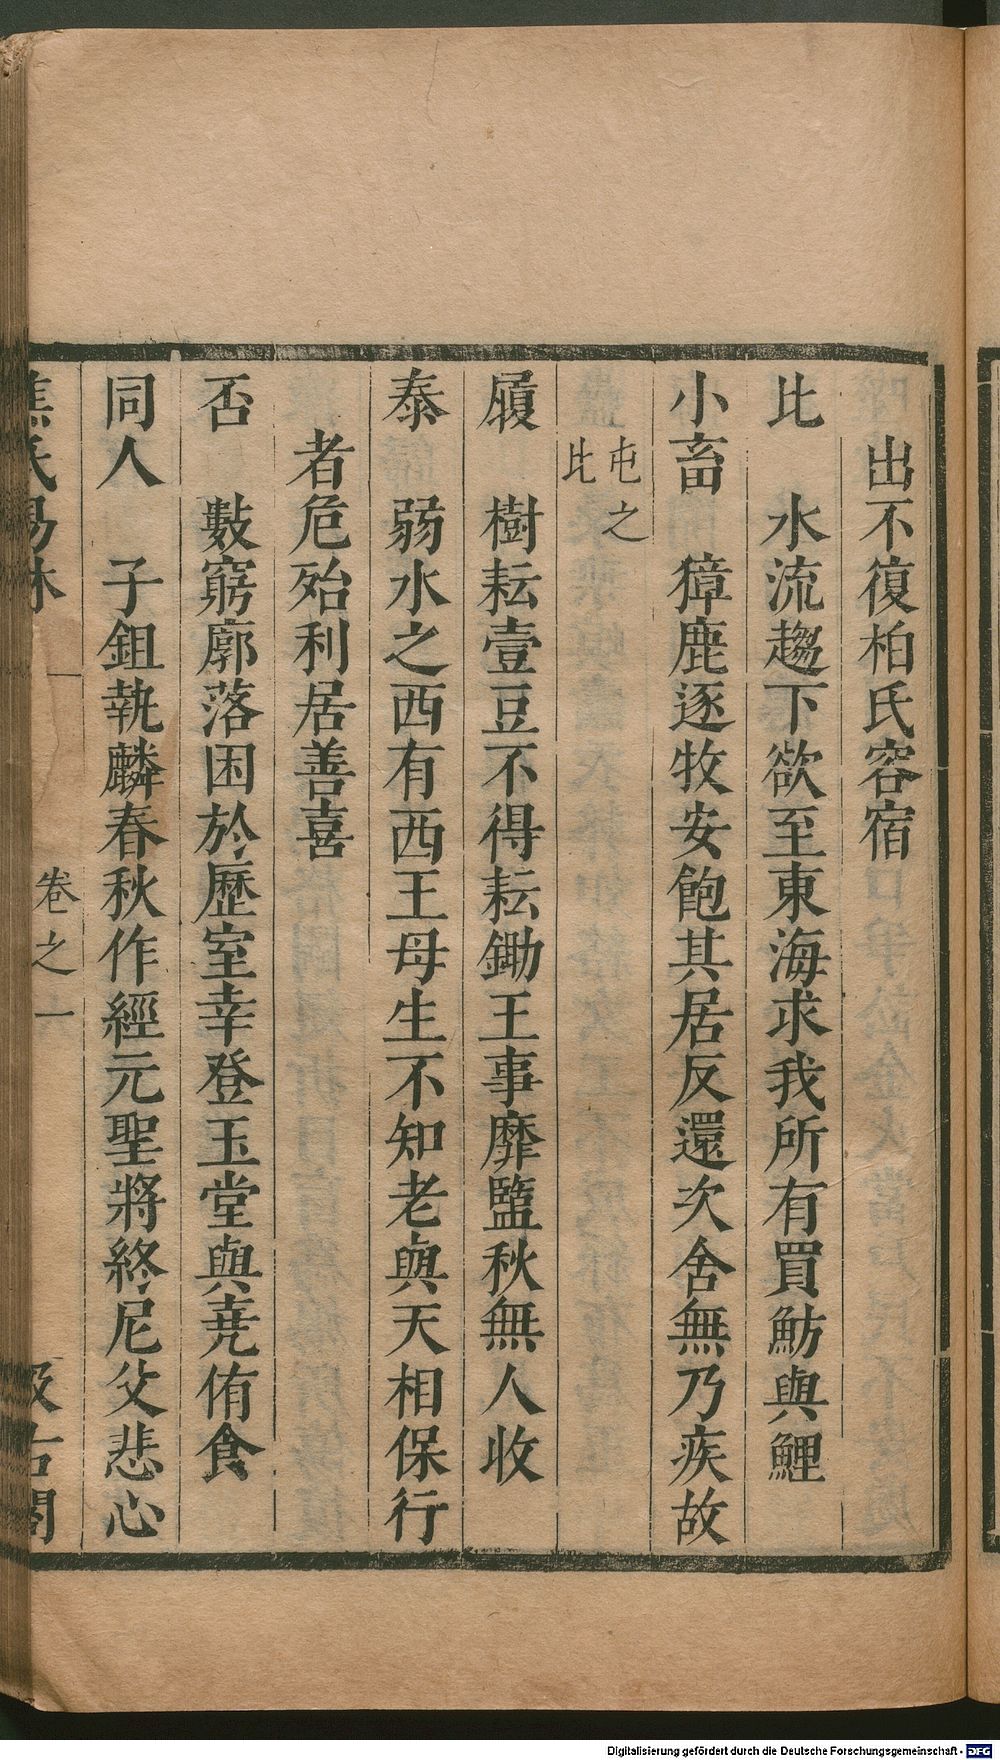 出不復柏氏容宿
比　水流趨下欲至東海求我所有買魴與鯉
小畜　獐鹿逐牧安飽其居反還次舍無乃疾故
屯之
比
履　樹耘壹豆不得耘鋤王事靡盬秋無人收
泰　弱水之西有西王母生不知老與天相保行
者危殆利居善喜
否　數窮廓落困於歷室幸登玉堂與堯侑食
同人　子鉏執麟春秋作經元聖將終尼父悲心
焦氏易林　卷之六　汲古閣
Digitalisierung gefördert durch die Deutsche Forschungsgemeinschaft - DFG